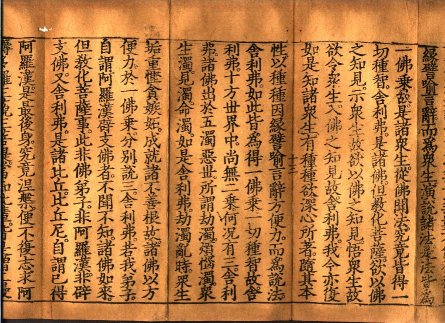 緣譬喻言辭而為眾生演說諸法是法皆為
一佛乘故是諸眾生從佛聞法究竟皆得一
切種智舍利弗是諸佛但教化菩薩欲以佛
之知見示眾生故欲以佛之知見悟眾生故
欲令眾生入佛之知見故舍利弗我今亦復
如是知諸眾生有種種欲深心所著隨其本
十三
性以種種因緣譬喻言辭方便力而為說法
舍利弗如此皆為得一佛乘一切種智故舍
利弗十方世界中尚無二乘何況有三舍利
弗諸佛出於五濁惡世所謂劫濁煩惱濁眾
生濁見濁命濁如是舍利弗劫濁亂時眾生
垢重慳貪嫉妬成就諸不善根故諸佛以方
便力於一佛乘分別說三舍利弗若我弟子
自謂阿羅漢辟支佛者不聞不知諸佛如來
但教化菩薩事此非佛弟子非阿羅漢非辟
支佛又舍利弗是諸比丘比丘尼自謂已得
阿羅漢是最後身究竟涅槃便不復志求阿